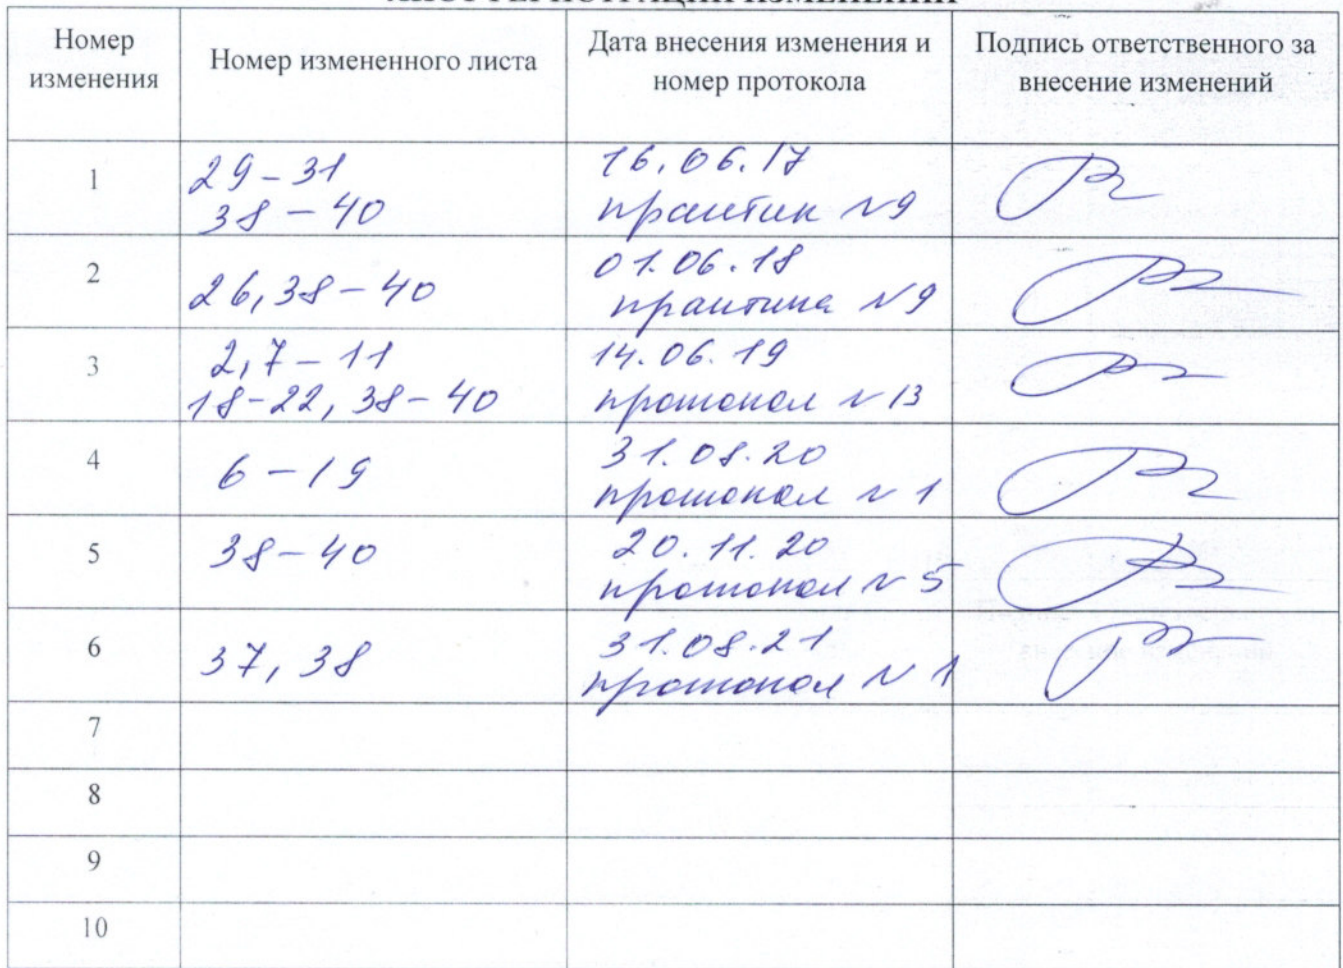 ЛИСТ РЕГИСТРАЦИИ ИЗМЕНЕНИЙ
Номер изменения
Номер измененного листа
Дата внесения изменения и номер протокола
Подпись ответственного за внесение изменений
1
29-31
38-40
16.06.17
№9
2
26,38-40
01.06.18
№9
3
2,7-11
18-22, 38-40
14.06.19
протокол №13
4
6-19
31.08.20
протокол №1
5
38-40
20.11.20
протокол №5
6
37, 38
31.08.21
протокол №1
7
8
9
10